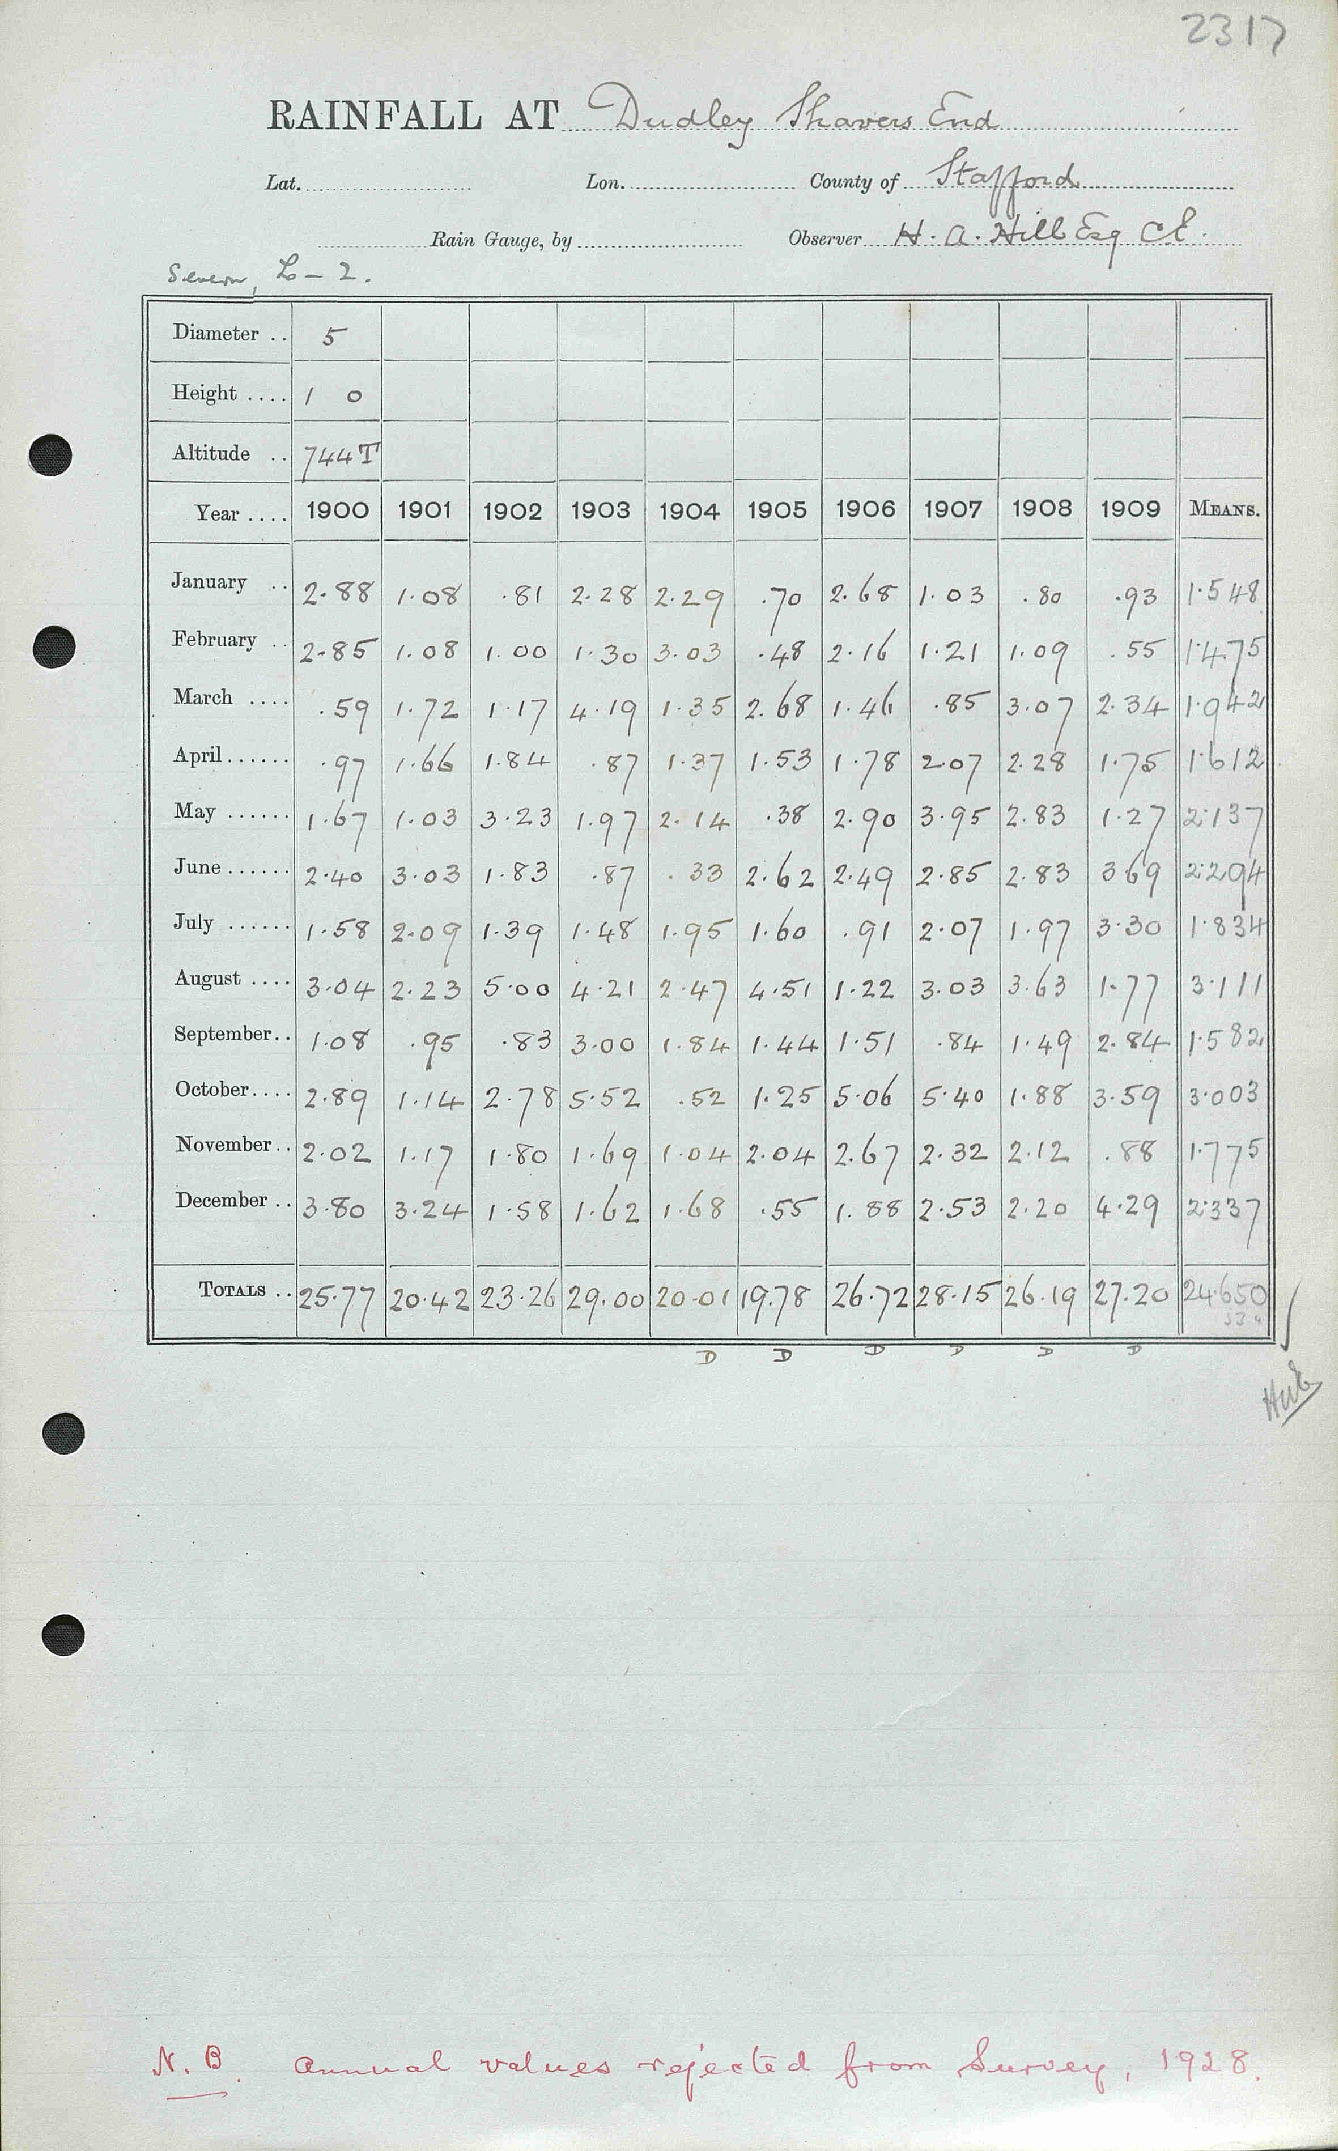 2317
RAINFALL AT Dudley Shavers End
Lat. Lon. County of Stafford
Rain Gauge, by Observer H. A. Hill Esq C E.
Severn, L - 2.
Diameter .. 5
Height .... 1 0
Altitude .. 744T
Year .... 1900 1901 1902 1903 1904 1905 1906 1907 1908 1909 MEANS.
January .. 2.88 1.08 .81 2.28 2.29 .70 2.68 1.03 .80 .93 1.548
February .. 2.85 1.08 1.00 1.30 3.03 .48 2.16 1.21 1.09 .55 1.475
March .... .59 1.72 1.17 4.19 1.35 2.68 1.46 .85 3.07 2.34 1.942
April...... .97 1.66 1.84 .87 1.37 1.53 1.78 2.07 2.28 1.75 1.612
May ...... 1.67 1.03 3.23 1.97 2.14 .38 2.90 3.95 2.83 1.27 2.137
June...... 2.40 3.03 1.83 .87 .33 2.62 2.49 2.85 2.83 3 69 2.294
July ...... 1.58 2.09 1.39 1.48 1.95 1.60 .91 2.07 1.97 3.30 1.834
August .... 3.04 2.23 5.00 4.21 2.47 4.51 1.22 3.03 3.63 1.77 3.111
September.. 1.08 .95 .83 3.00 1.84 1.44 1.51 .84 1.49 2.84 1.582
October.... 2.89 1.14 2.78 5.52 .52 1.25 5.06 5.40 1.88 3.59 3.003
November.. 2.02 1.17 1.80 1.69 1.04 2.04 2.67 2.32 2.12 .88 1.775
December .. 3.80 3.24 1.58 1.62 1.68 .55 1.88 2.53 2.20 4.29 2.337
TOTALS .. 25.77 20.42 23.26 29.00 20.01 19.78 26.72 28.15 26.19 27.20 24.650
D D D D D D
N. B. Annual values rejected from Survey, 1928.